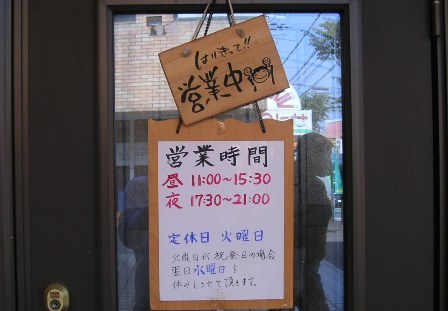 はりきって!!
営業中
営業時間
昼 11:00～15:30
夜 17:30～21:00
定休日 火曜日
火曜日が祝祭日の場合
翌日水曜日を
休みとさせて頂きます。